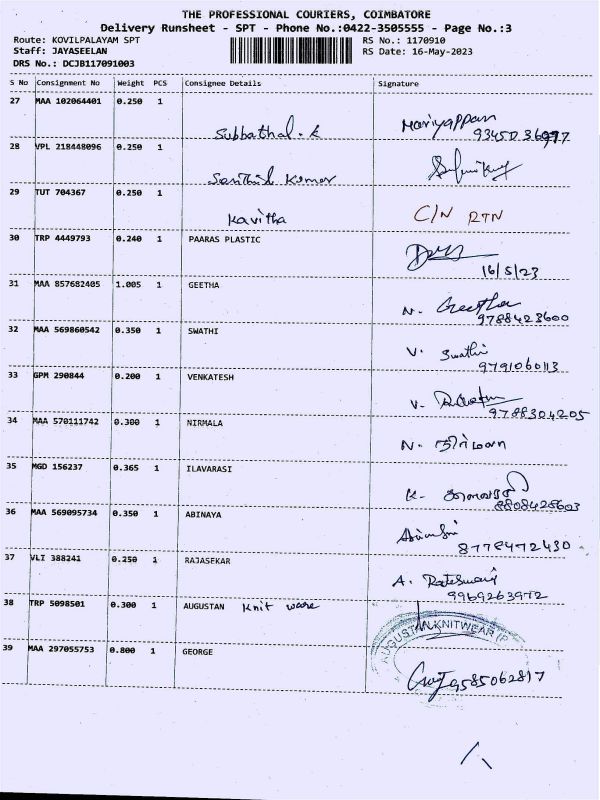 THE PROFESSIONAL COURIERS, COIMBATORE
Delivery Runsheet - SPT - Phone No.:0422-3505555 - Page No.:3
Route: KOVILPALAYAM SPT RS No.: 1170910
Staff: JAYASEELAN RS Date: 16-May-2023
DRS No.: DCJB117091003
S No Consignment No Weight PCS Consignee Details Signature
27 MAA 102064401 0.250 1
Subbathal. K Mariyappan
28 VPL 218448096 0.250 1
Senthil Kumar
29 TUT 704367 0.250 1
Kavitha C/N RTN
30 TRP 4449793 0.240 1 PAARAS PLASTIC
16/5/23
31 MAA 857682405 1.005 1 GEETHA
N. Geetha
9788423600
32 MAA 569860542 0.350 1 SWATHI
V. Swathi
9791060113
33 GPM 290844 0.200 1 VENKATESH
V.
9788304205
34 MAA 570111742 0.300 1 NIRMALA
N. நிர்மலா
35 MGD 156237 0.365 1 ILAVARASI
K.
8808428603
36 MAA 569095734 0.350 1 ABINAYA
8778472430
37 VLI 388241 0.250 1 RAJASEKAR
A. Rateswari
9969263972
38 TRP 5098501 0.300 1 AUGUSTAN Knit ware
AUGUSTAN KNITWEAR (P
39 MAA 297055753 0.800 1 GEORGE
9585062817